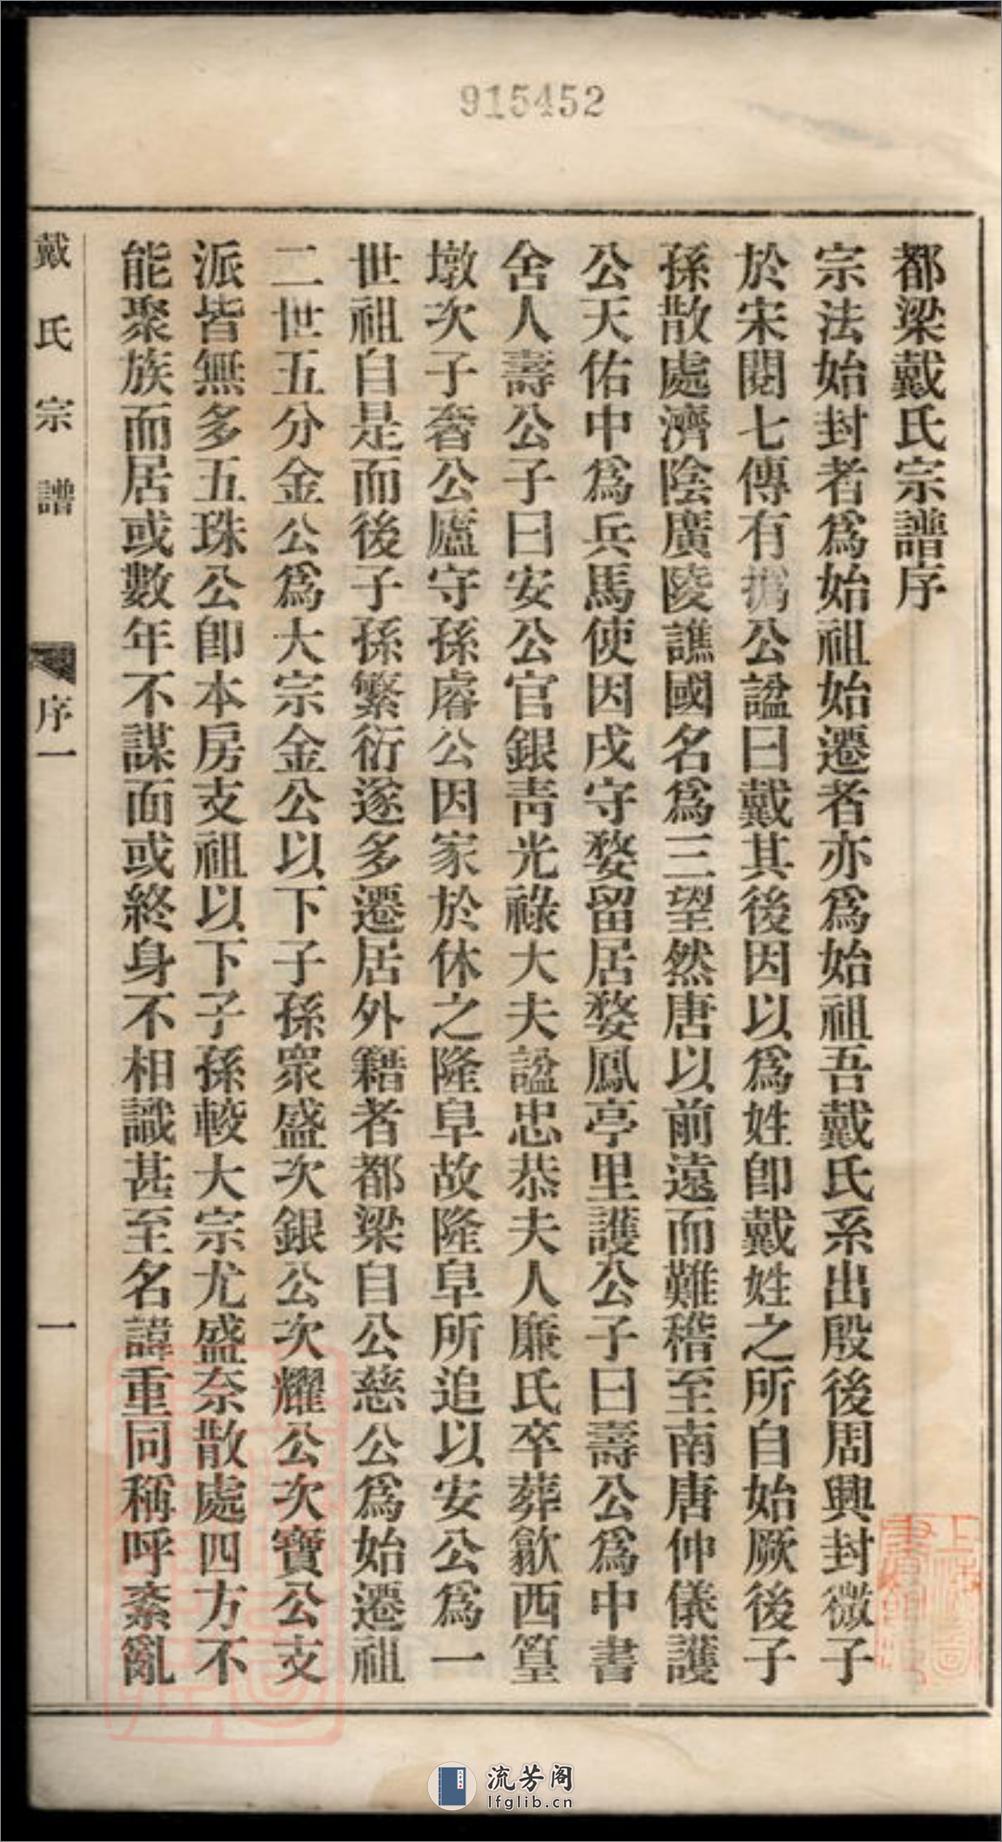 915452
都梁戴氏宗譜序
宗法始封者為始祖始遷者亦為始祖吾戴氏系出殷後周興封微子
於宋閱七傳有撝公諡曰戴其後因以為姓卽戴姓之所自始厥後子
孫散處濟陰廣陵譙國名為三望然唐以前遠而難稽至南唐仲儀護
公天佑中為兵馬使因戍守婺留居婺鳳亭里護公子曰壽公為中書
舍人壽公子曰安公官銀靑光祿大夫諡忠恭夫人廉氏卒葬歙西篁
墩次子奢公廬守孫睿公因家於休之隆阜故隆阜所追以安公為一
世祖自是而後子孫繁衍遂多遷居外籍者都梁自公慈公為始遷祖
二世五分金公為大宗金公以下子孫衆盛次銀公次耀公次寶公支
派皆無多五珠公卽本房支祖以下子孫較大宗尤盛奈散處四方不
能聚族而居或數年不謀面或終身不相識甚至名諱重同稱呼紊亂
戴氏宗譜 序一 一
流芳阁
lfglib.cn